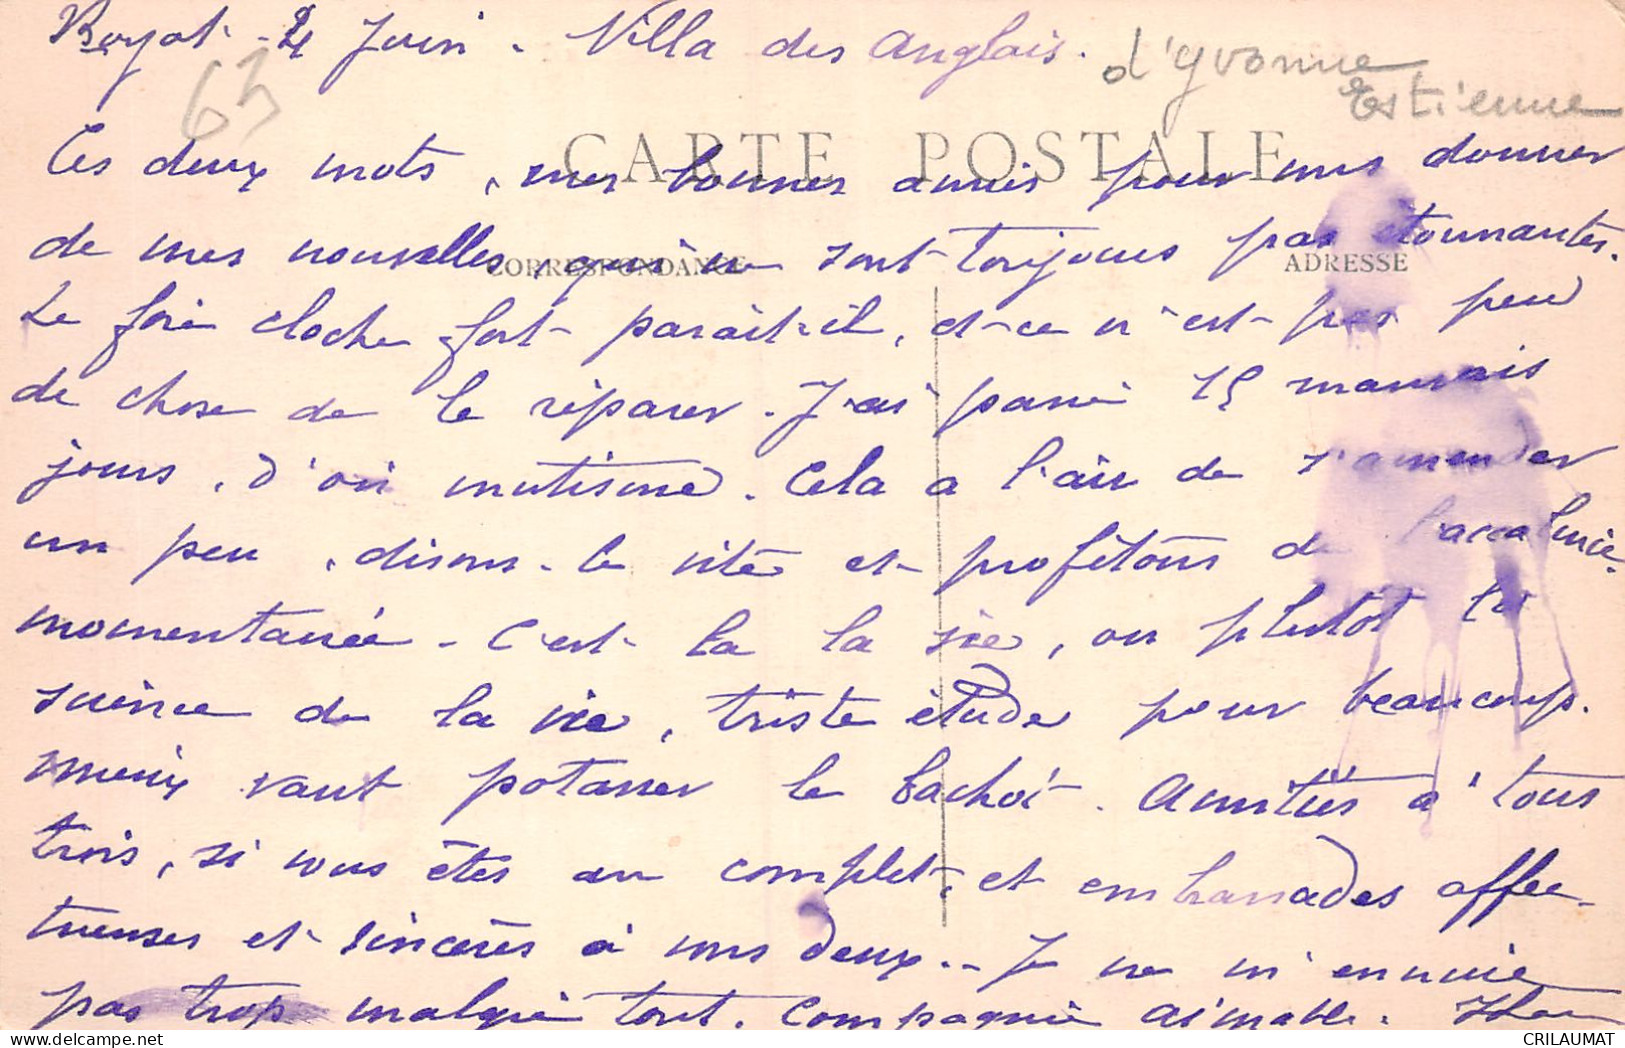 Royat - 24 Juin - Villa des Anglais.
d'Yvonne
Estienne
63
CARTE POSTALE
Ces deux mots, mes bonnes amies pour vous donner
de mes nouvelles, qui ne sont toujours pas étonnantes.
CORRESPONDANCE
ADRESSE
Le foie cloche fort paraît-il, et ce n'est pas peu
de chose de le réparer. J'ai passé 15 mauvais
jours, d'où mutisme. Cela a l'air de s'amender
un peu, disons-le vite et profitons de l'accalmie
momentanée - C'est la la vie, ou plutôt la
science de la vie, triste étude pour beaucoup.
mieux vaut potasser le bachot. Amitiés à tous
trois, si vous êtes au complet, et embrassades affec-
tueuses et sincères à vous deux.. Je ne m'ennuie
pas trop malgré tout. Compagnie aimable.
www.delcampe.net
CRILAUMAT